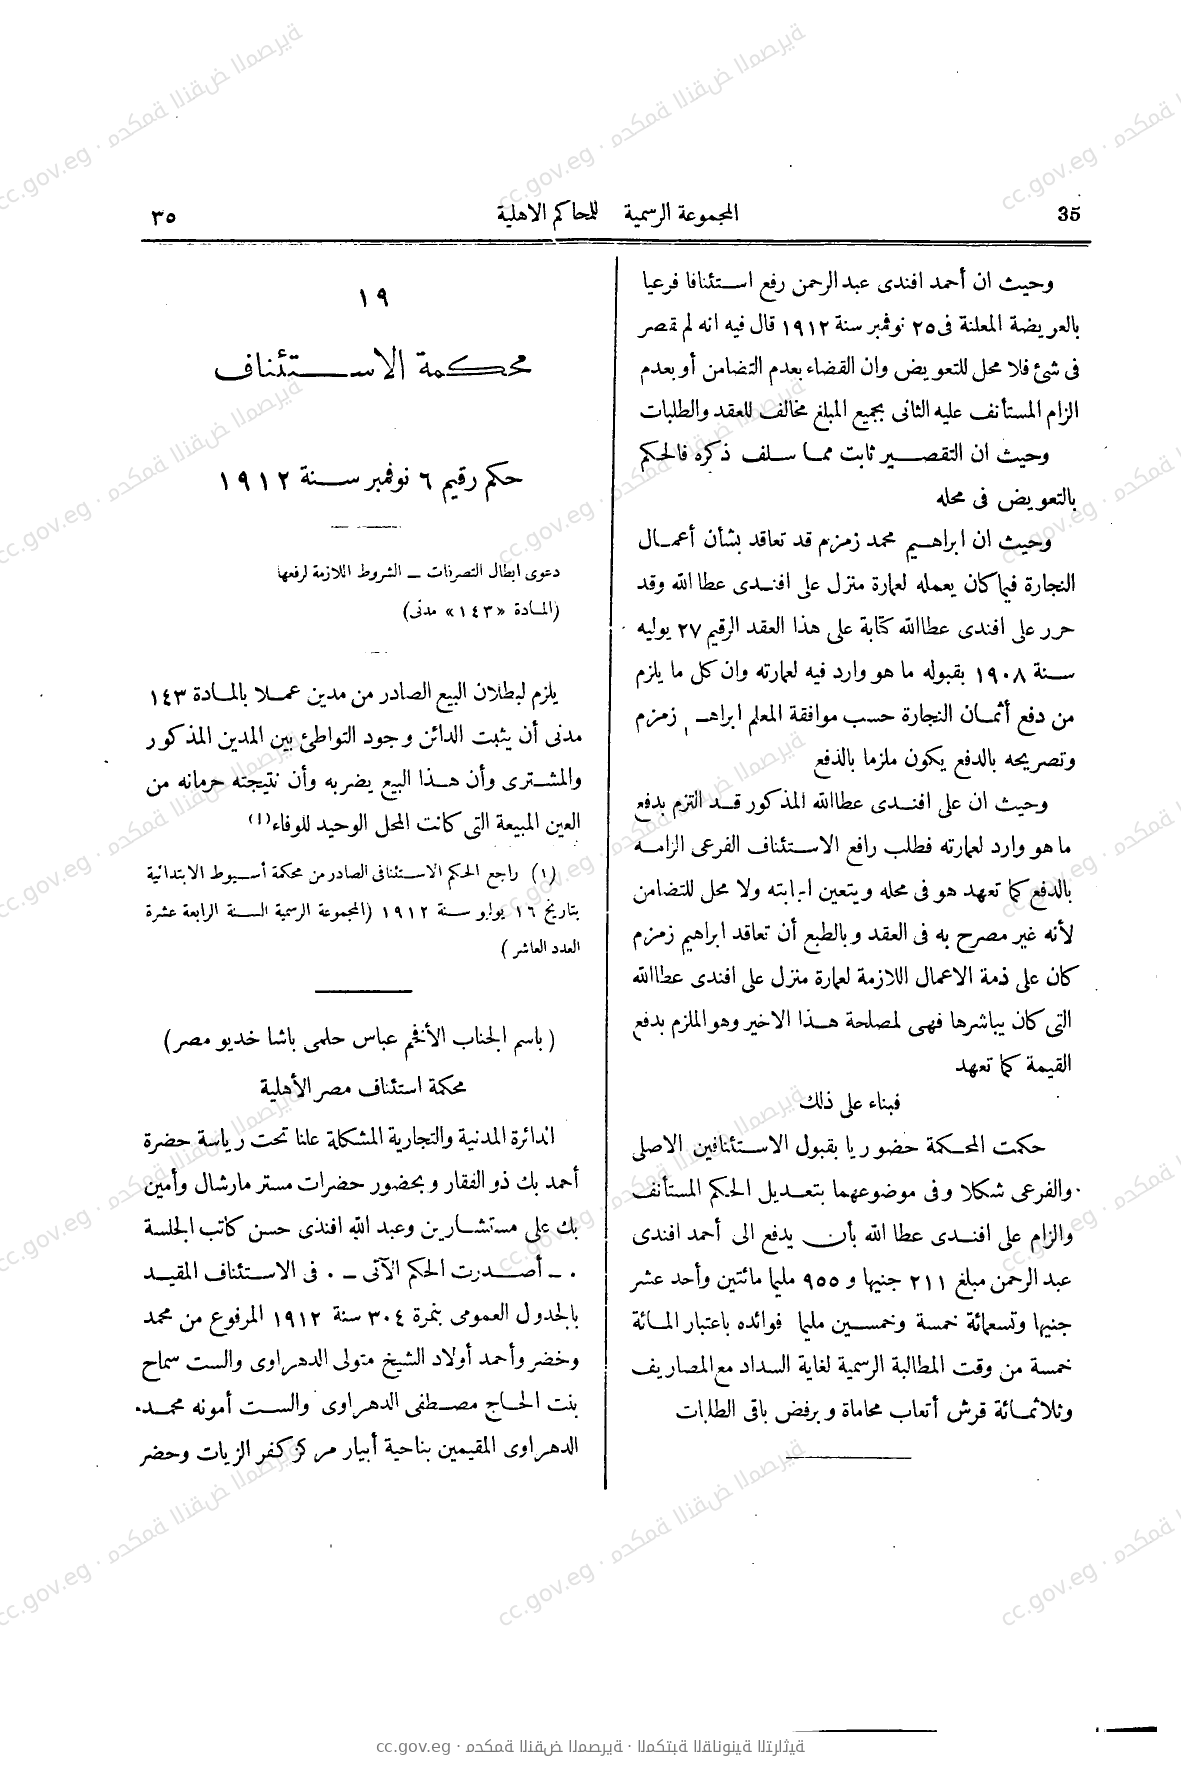 35
المجموعة الرسمية للمحاكم الاهلية
٣٥
وحيث ان أحمد افندى عبد الرحمن رفع استئنافا فرعيا
بالعريضة المعلنة فى ٢٥ نوفمبر سنة ١٩١٢ قال فيه انه لم يقصر
فى شئ فلا محل للتعويض وان القضاء بعدم التضامن أو بعدم
الزام المستأنف عليه الثانى بجميع المبلغ مخالف للعقد والطلبات
وحيث ان التقصير ثابت مما سلف ذكره فالحكم
بالتعويض فى محله
وحيث ان ابراهيم محمد زمزم قد تعاقد بشأن أعمال
النجارة فيما كان يعمله لعمارة منزل على افندى عطا الله وقد
حرر على افندى عطاالله كتابة على هذا العقد الرقيم ٢٧ يوليه
سنة ١٩٠٨ بقبوله ما هو وارد فيه لعمارته وان كل ما يلزم
من دفع أثمان النجارة حسب موافقة المعلم ابراهيم زمزم
وتصريحه بالدفع يكون ملزما بالدفع
وحيث ان على افندى عطاالله المذكور قد التزم بدفع
ما هو وارد لعمارته فطلب رافع الاستئناف الفرعى الزامه
بالدفع كما تعهد هو فى محله ويتعين اجابته ولا محل للتضامن
لأنه غير مصرح به فى العقد وبالطبع أن تعاقد ابراهيم زمزم
كان على ذمة الاعمال اللازمة لعمارة منزل على افندى عطاالله
التى كان يباشرها فهى لمصلحة هذا الاخير وهو الملزم بدفع
القيمة كما تعهد
فبناء على ذلك
حكمت المحكمة حضوريا بقبول الاستئنافين الاصلى
والفرعى شكلا وفى موضوعهما بتعديل الحكم المستأنف
والزام على افندى عطا الله بأن يدفع الى أحمد افندى
عبد الرحمن مبلغ ٢١١ جنيها و ٩٥٥ مليما مائتين وأحد عشر
جنيها وتسعمائة خمسة وخمسين مليما فوائده باعتبار المائة
خمسة من وقت المطالبة الرسمية لغاية السداد مع المصاريف
وثلاثمائة قرش أتعاب محاماة وبرفض باقى الطلبات
١٩
محكمة الاستئناف
حكم رقيم ٦ نوفمبر سنة ١٩١٢
دعوى ابطال التصرفات – الشروط اللازمة لرفعها
(المادة «١٤٣» مدنى)
يلزم لبطلان البيع الصادر من مدين عملا بالمادة ١٤٣
مدنى أن يثبت الدائن وجود التواطئ بين المدين المذكور
والمشترى وأن هذا البيع يضر به وأن نتيجته حرمانه من
العين المبيعة التى كانت المحل الوحيد للوفاء(١)
(١) راجع الحكم الاستئنافى الصادر من محكمة أسيوط الابتدائية
بتاريخ ١٦ يوليو سنة ١٩١٢ (المجموعة الرسمية السنة الرابعة عشرة
العدد العاشر)
(باسم الجناب الأفخم عباس حلمى باشا خديو مصر)
محكمة استئناف مصر الأهلية
الدائرة المدنية والتجارية المشكلة علنا تحت رياسة حضرة
أحمد بك ذو الفقار وبحضور حضرات مستر مارشال وأمين
بك على مستشارين وعبد الله افندى حسن كاتب الجلسة
. – أصدرت الحكم الآتى – . فى الاستئناف المقيد
بالجدول العمومى بنمرة ٣٠٤ سنة ١٩١٢ المرفوع من محمد
وخضر وأحمد أولاد الشيخ متولى الدهراوى والست سماح
بنت الحاج مصطفى الدهراوى والست أمونه محمد
الدهراوى المقيمين بناحية أبيار مركز كفر الزيات وحضر
cc.gov.eg · محكمة النقض المصرية · المكتبة القانونية التراثية